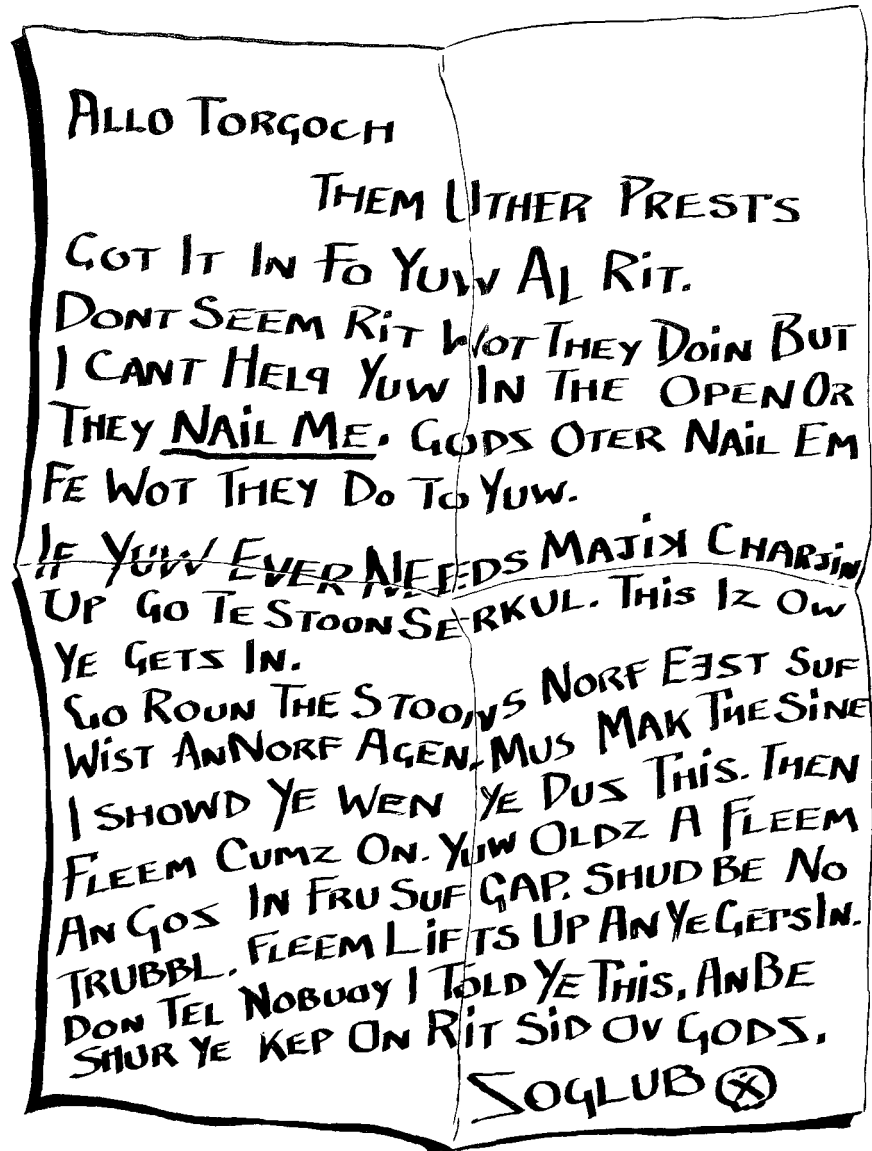 ALLO TORGOCH
THEM UTHER PRESTS
GOT IT IN FO YUW AL RIT.
DONT SEEM RIT WOT THEY DOIN BUT
I CANT HELP YUW IN THE OPEN OR
THEY NAIL ME. GODS OTER NAIL EM
FE WOT THEY DO TO YUW.
IF YUW EVER NEEDS MAJIK CHARJIN
UP GO TE STOON SERKUL. THIS IZ OW
YE GETS IN.
GO ROUN THE STOONS NORF EEST SUF
WIST AN NORF AGEN. MUS MAK THE SINE
I SHOWD YE WEN YE DUS THIS. THEN
FLEEM CUMZ ON. YUW OLDZ A FLEEM
AN GOS IN FRU SUF GAP. SHUD BE NO
TRUBBL. FLEEM LIFTS UP AN YE GETS IN.
DON TEL NOBUDY I TOLD YE THIS. AN BE
SHUR YE KEP ON RIT SID OV GODS.
SOGLUB